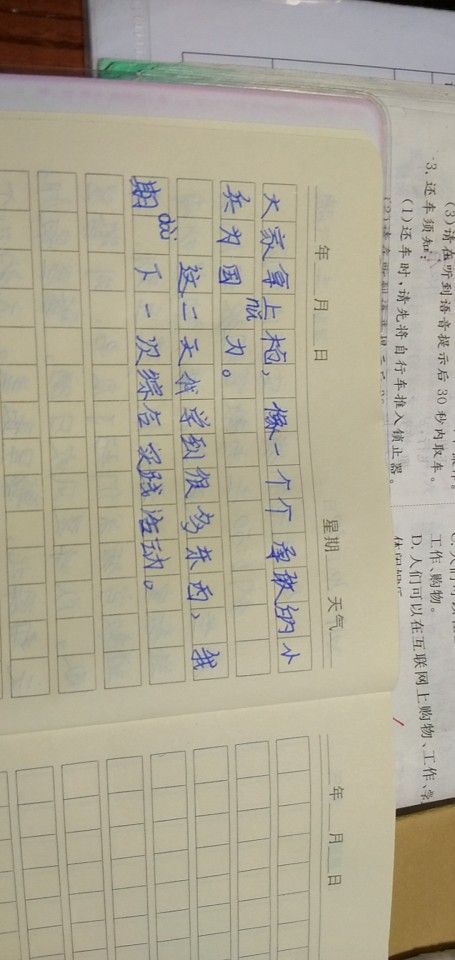 年 月 日 星期 天气
大家拿上枪，像一个个勇敢的小
兵为国 力。
这二天我学到很多东西，我
期dài下一次综合实践活动。
年 月 日
(3)请在听到语音提示后30秒内取车。
3.还车须知：
(1)还车时，请先将自行车推入锁止器。
工作、购物。
D.人们可以在互联网上购物、工作、